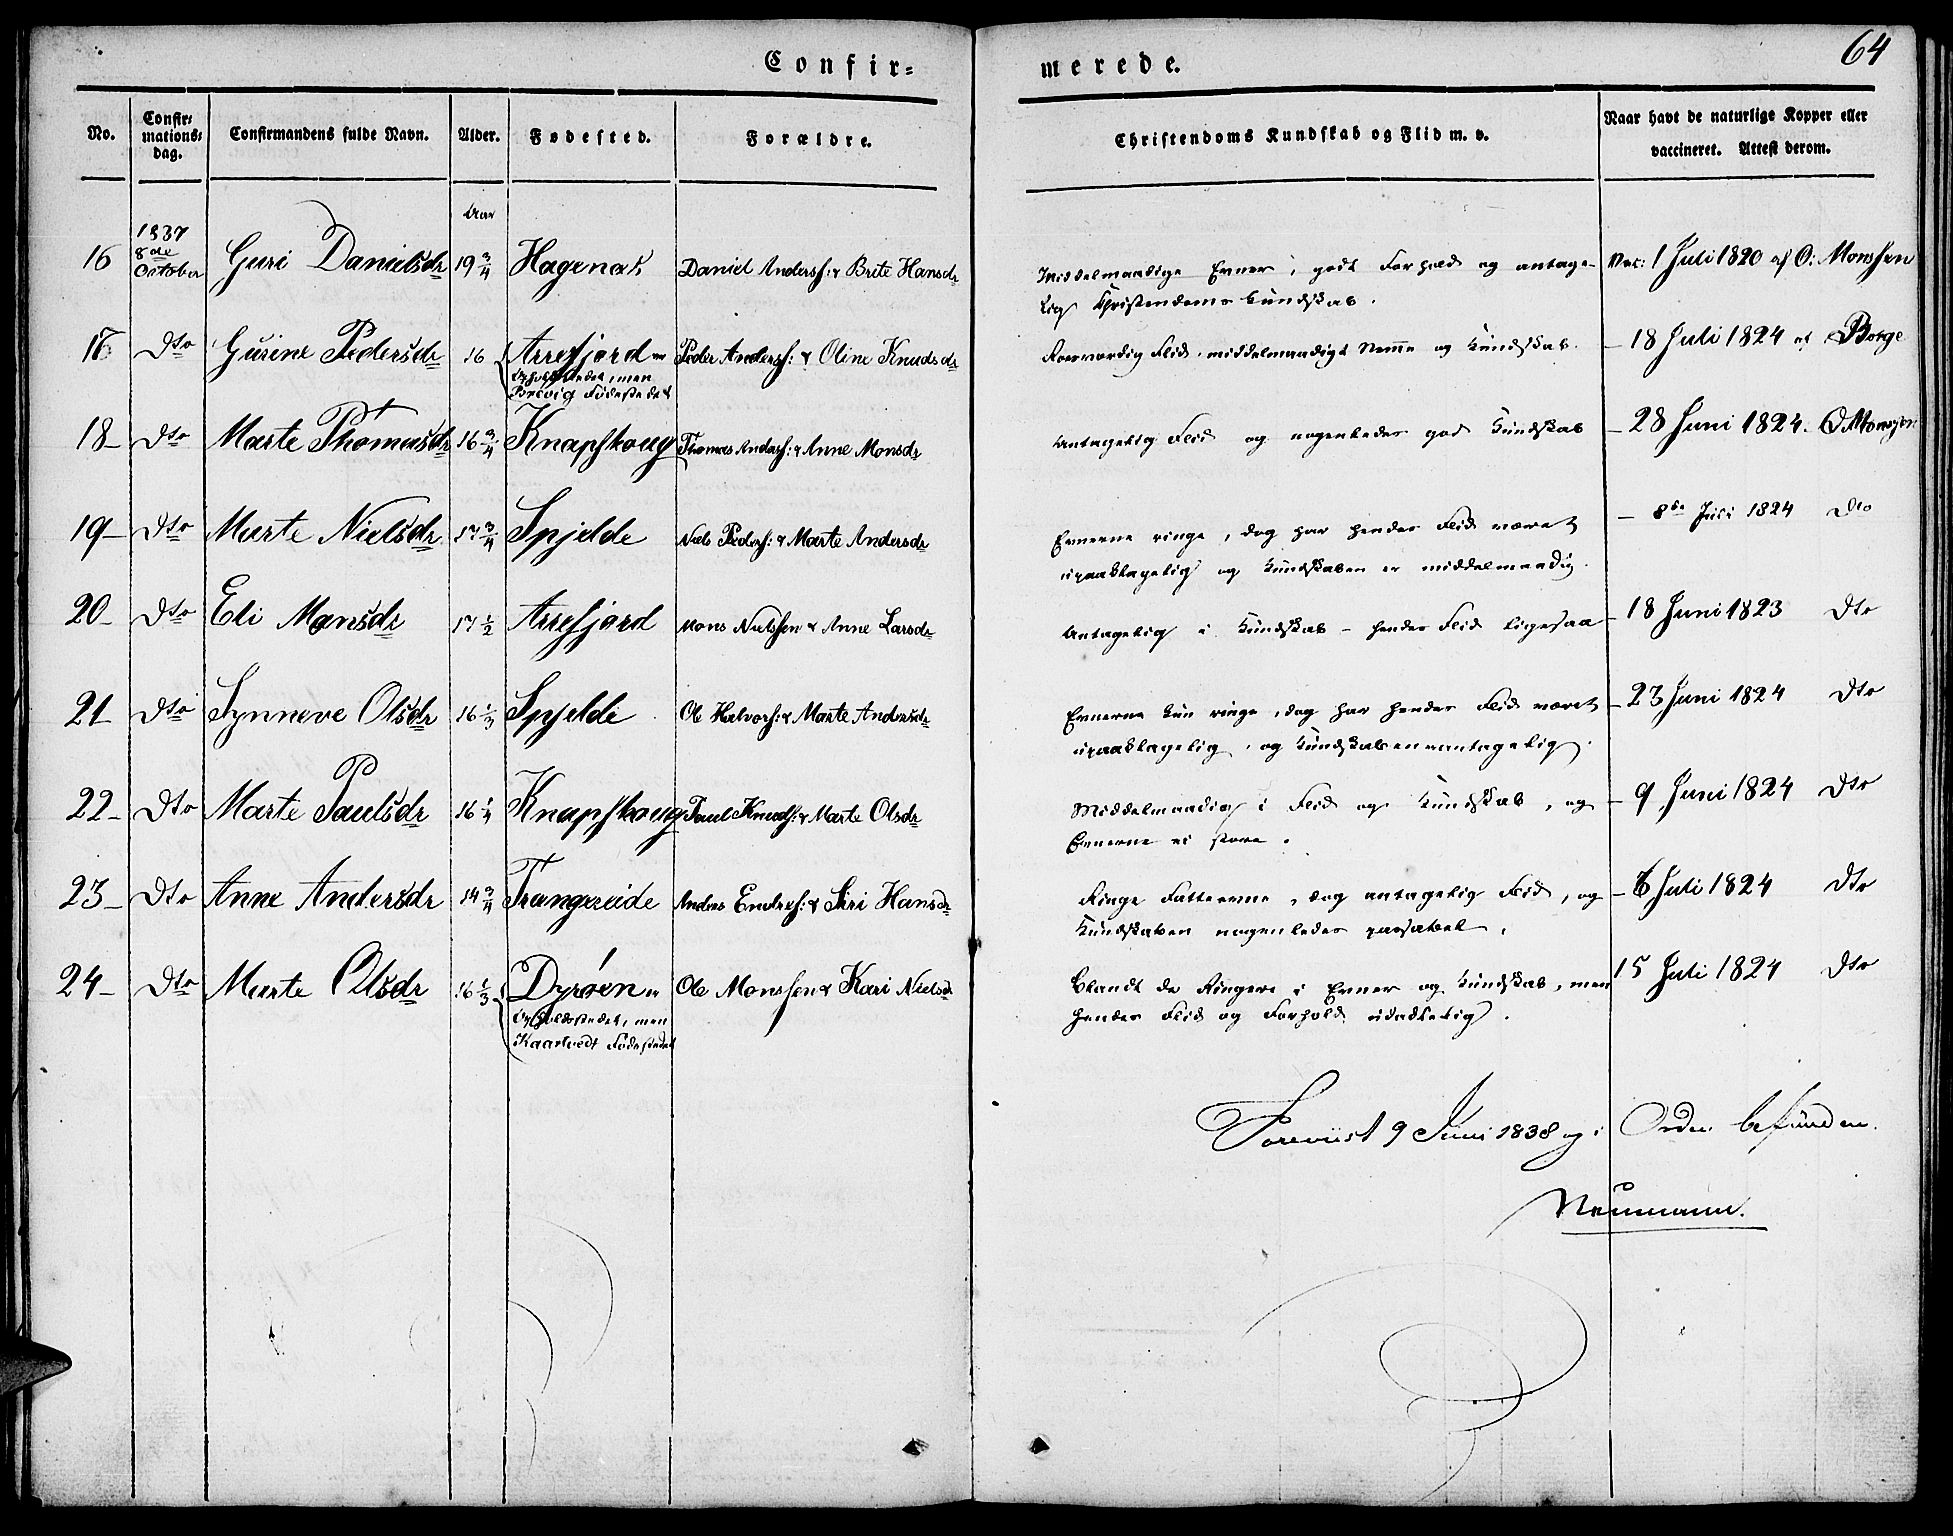 64
Confir= merede.
No. Confir=mations=dag. Confirmandens fulde Navn. Alder. Fødested. Forældre. Christendoms Kundskab og Flid m. v. Naar havt de naturlige Kopper eller vaccineret. Attest derom.
Aar
16 1837 8de October Guri Danielsdr 19 3/4 Daniel Anderss: & Brite Hansdr Middelmaadige Evner, godt Forhold og antage- Vac: 1 Juli 1820 af O: Monssen
lig Christendoms Kundskab.
17 Dto Gurine Pedersdr 16 Arrefjord er Peder Anderss: & Oline Knudsdr Roesværdig Flid, middelmaadigt Nemme og Kundskab. - 18 Juli 1824 af Borge
Opholdstedet, men
Brevig Fødestedet
18 - Dto Marte Thomasdr 16 3/4 Knapskoug Thomas Anderss: & Anne Monsdr Antagelig Flid og nogenledes god Kundskab - 28 Juni 1824. O Monssen
19 - Dto Marte Nielsdr 17 3/4 Spjelde Niels Pederss: & Marte Andersdr Evnerne ringe, dog har hendes Flid været - 8de Juli 1824 Dto
upaaklagelig og Kundskaben er middelmaadig.
20 - Dto Eli Monsdr 17 1/2 Arrefjord Mons Nielssen & Anne Larsdr Antagelig i Kundskab - hendes Flid ligesaa - 18 Juni 1823 Dto
21 - Dto Synneve Olsdr 16 1/3 Spjelde Ole Halvors: & Marte Andersdr Evnerne kun ringe, dog har hendes Flid været - 23 Juni 1824 Dto
upaaklagelig, og Kundskaben antagelig.
22 - Dto Marte Paulsdr 16 1/4 Knapskoug Paul Knuds: & Marte Olsdr Middelmaadig i Flid og Kundskab, og - 9 Juni 1824 Dto
Evnerne ei store.
23 - Dto Anne Andersdr 14 3/4 Trangereide Anders Endress: & Siri Hansdr Ringe Fatteevne, dog antagelig Flid, og - 6 Juli 1824 Dto
Kundskaben nogenledes passabel.
24 - Dto Marte Olsdr 16 1/3 Dyrøen er Ole Monssen & Kari Nielsdr Blandt de Ringere i Evner og Kundskab, men 15 Juli 1824 Dto
Opholdsstedet, men hendes Flid og Forhold udadlelig.
Kaartvedt Fødestedet
Foreviist 9 Juni 1838 og i Orden befunden.
Neumann.